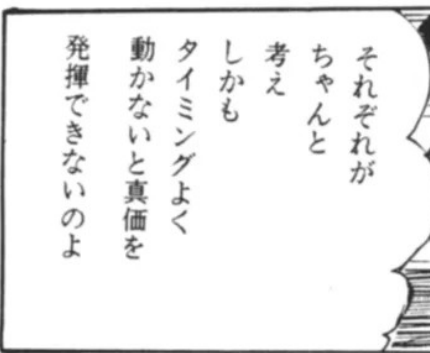 それぞれが
ちゃんと
考え
しかも
タイミングよく
動かないと真価を
発揮できないのよ